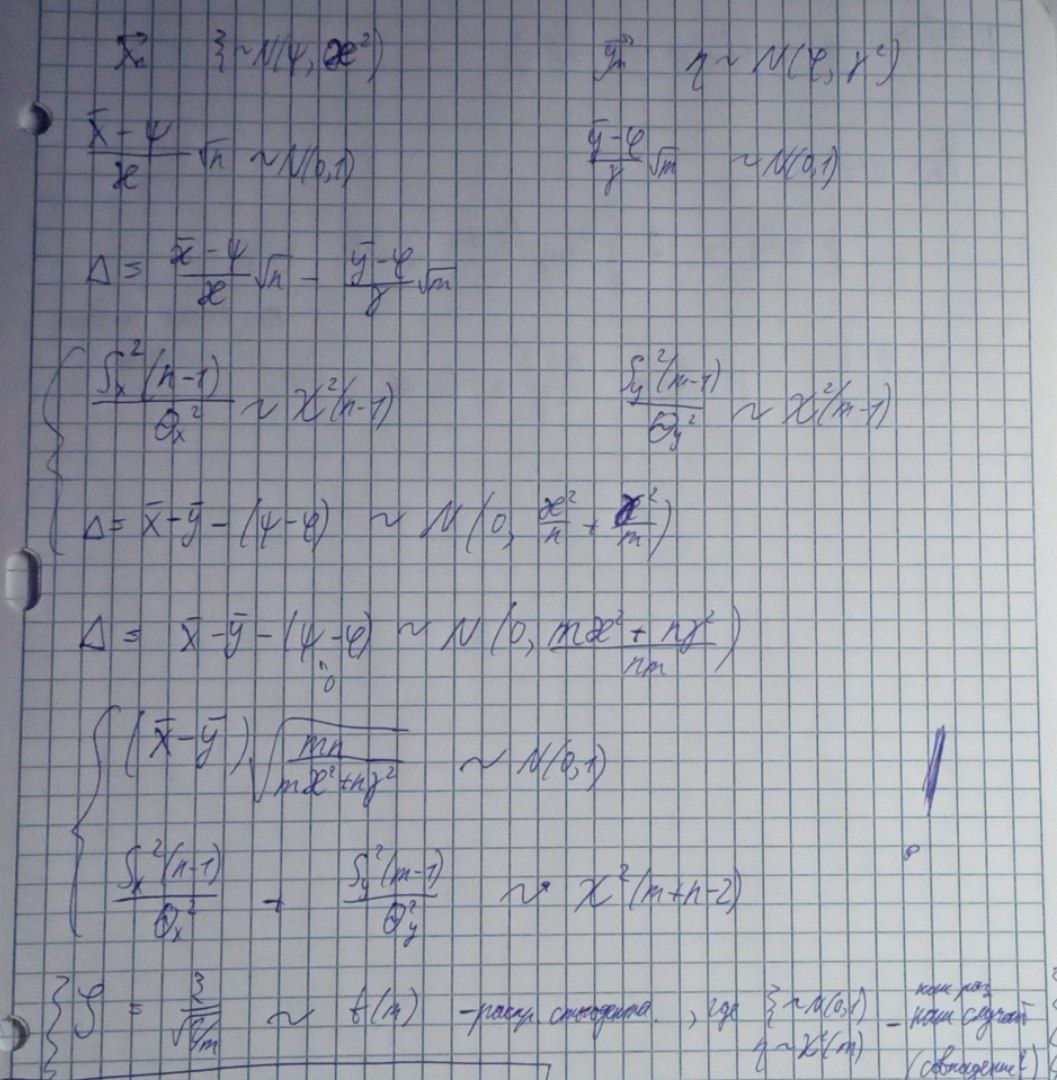 x⃗ₙ ξ ~ N(ψ, æ²) y⃗ₘ η ~ N(φ, γ²)
(x̄ - ψ)/æ √n ~ N(0,1) (ȳ - φ)/γ √m ~ N(0,1)
Δ = (x̄ - ψ)/æ √n - (ȳ - φ)/γ √m
{ Sₓ²(n-1)/Θₓ² ~ χ²(n-1) S_y²(m-1)/Θ_y² ~ χ²(m-1)
Δ = x̄ - ȳ - (ψ - φ) ~ N(0, æ²/n + æ²/m)
Δ = x̄ - ȳ - (ψ - φ) ~ N(0, (mæ² + nγ²)/(nm))
"0
{ (x̄ - ȳ) √(mn/(mæ² + nγ²)) ~ N(0,1)
Sₓ²(n-1)/Θₓ² + S_y²(m-1)/Θ_y² ~ χ²(m+n-2)
{ φ = ξ/√(η/m) ~ t(m) - распр. стьюдента, где ξ ~ N(0,1) - как раз наш случай
η ~ χ²(m) (совпадение?)